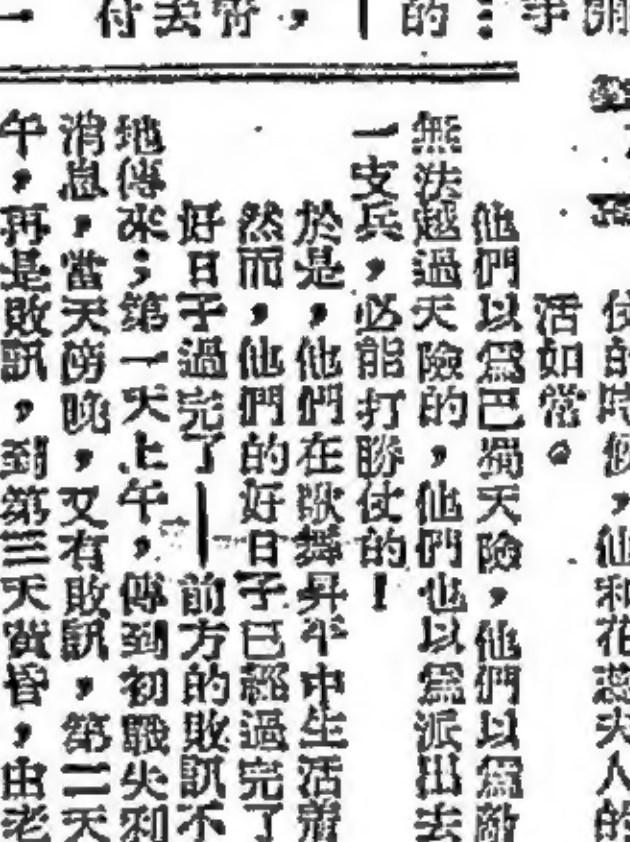 仗的時候，他和花蕊夫人的
活如當。
他們以爲巴蜀天險，他們以爲敵
無法越過天險的，他們也以爲派出去
一支兵，必能打勝仗的！
於是，他們在歌舞昇平中生活着
然而，他們的好日子已經過完了
好日子過完了—前方的敗訊不
地傳來；第一天上午，傳到初戰失利
消息，當天傍晚，又有敗訊，第二天
午，再是敗訊，到第三天黃昏，由老